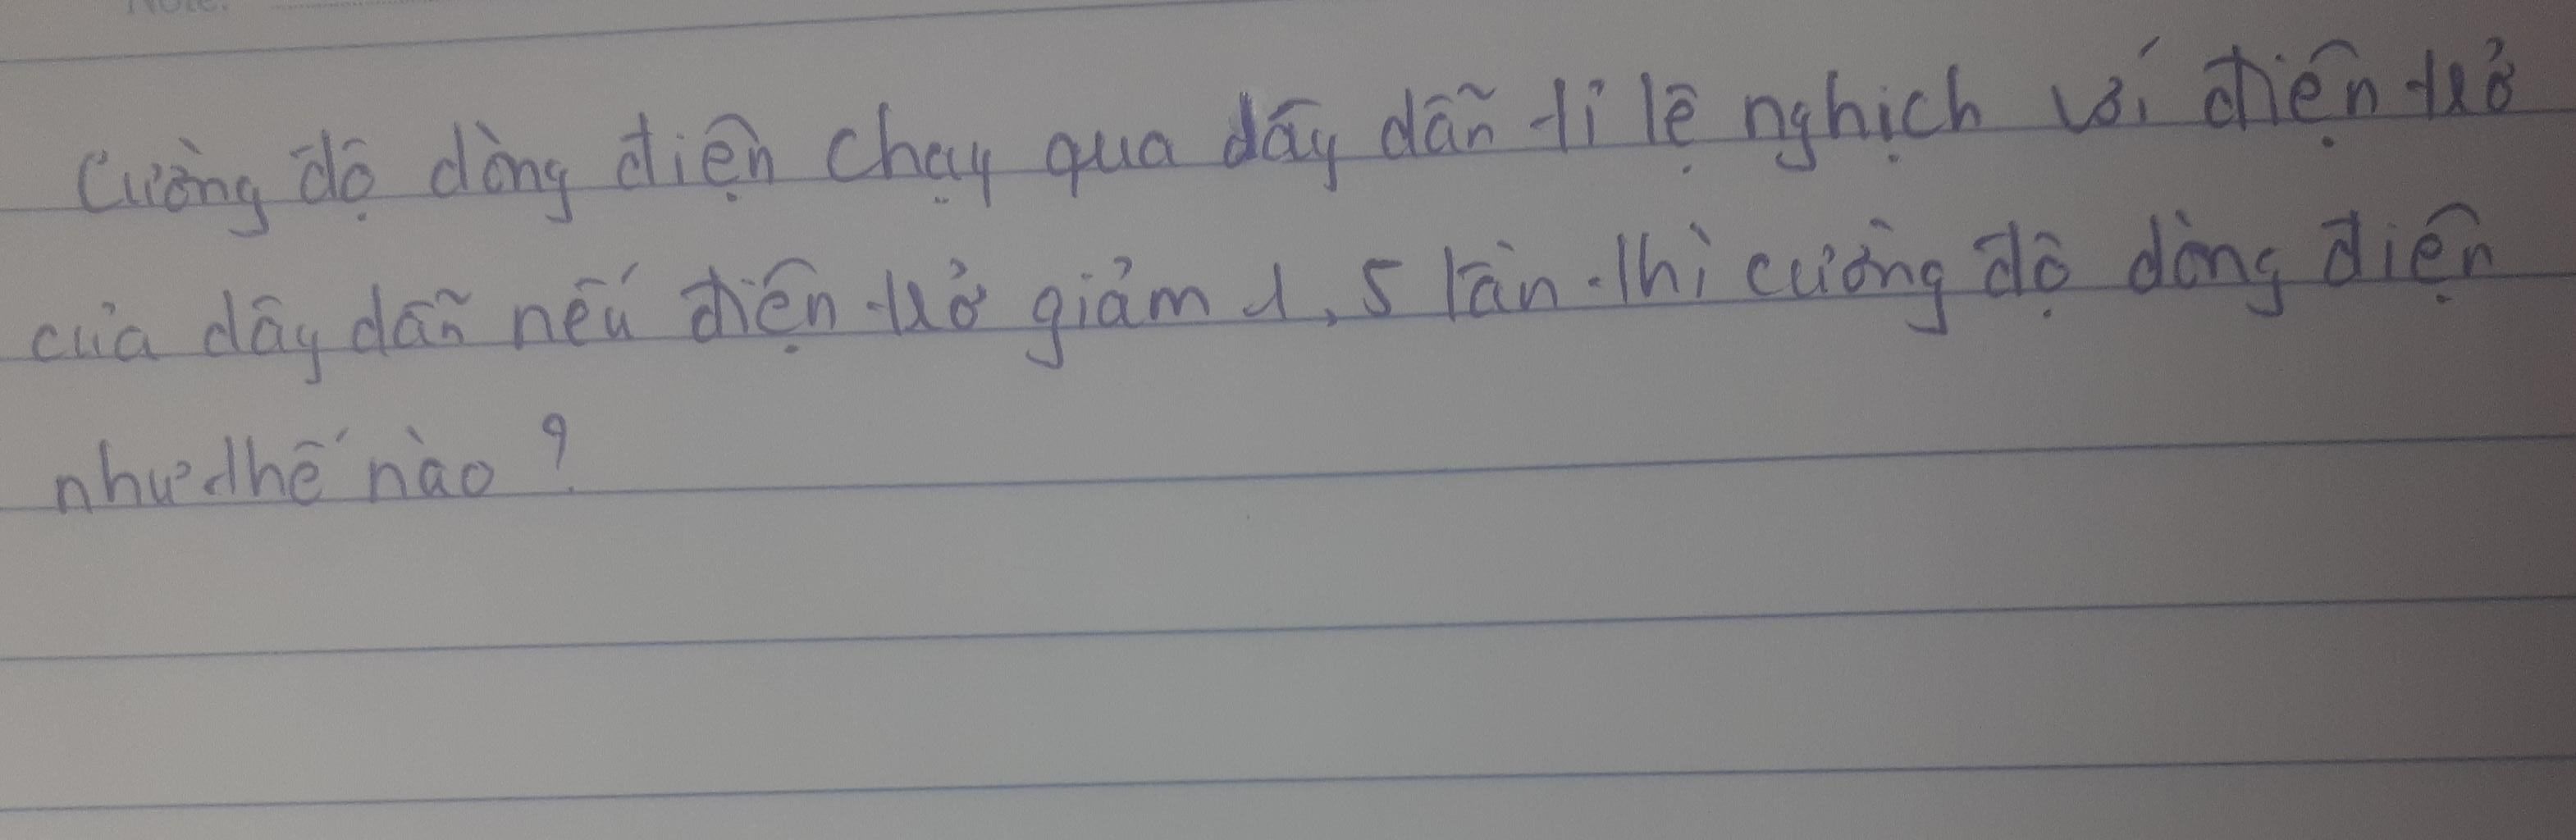 Note:
Cường độ dòng điện chạy qua dây dẫn tỉ lệ nghịch với điện trở
của dây dẫn nếu điện trở giảm 1,5 lần thì cường độ dòng điện
như thế nào?